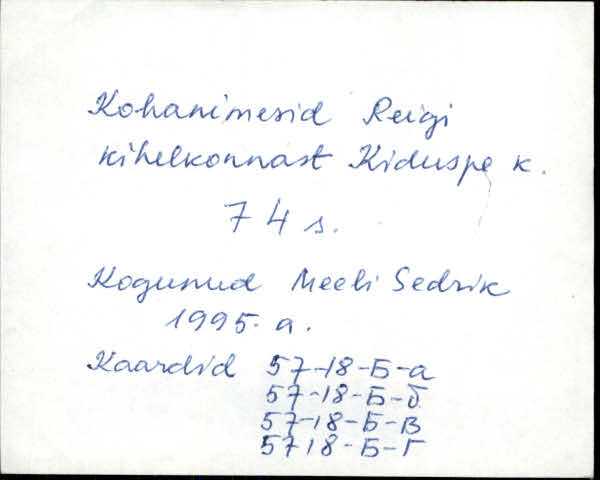 Kohanimesid Reigi
kihelkonnast Kiduspe k.
74 s.
Kogunud Meeli Sedrik
1995. a.
Kaardid 57-18-Б-а
57-18-Б-б
57-18-Б-в
5718-Б-г